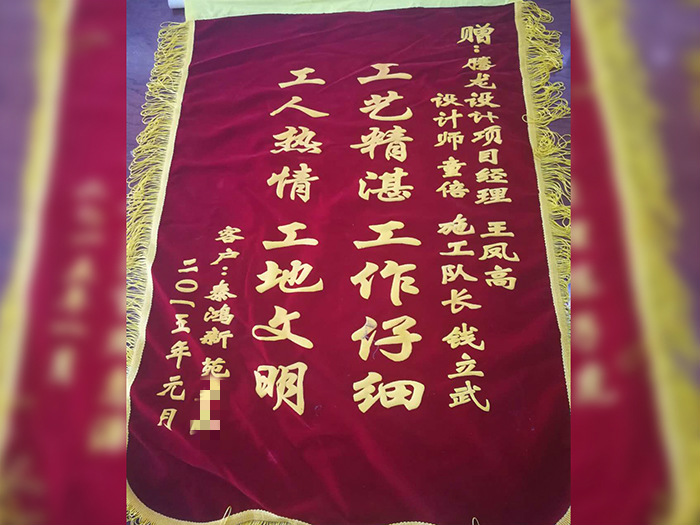 赠：腾龙设计项目经理 王凤高
设计师 童倍 施工队长 钱立武
工艺精湛 工作仔细
工人热情 工地文明
客户：泰鸿新苑
二〇一五年元月